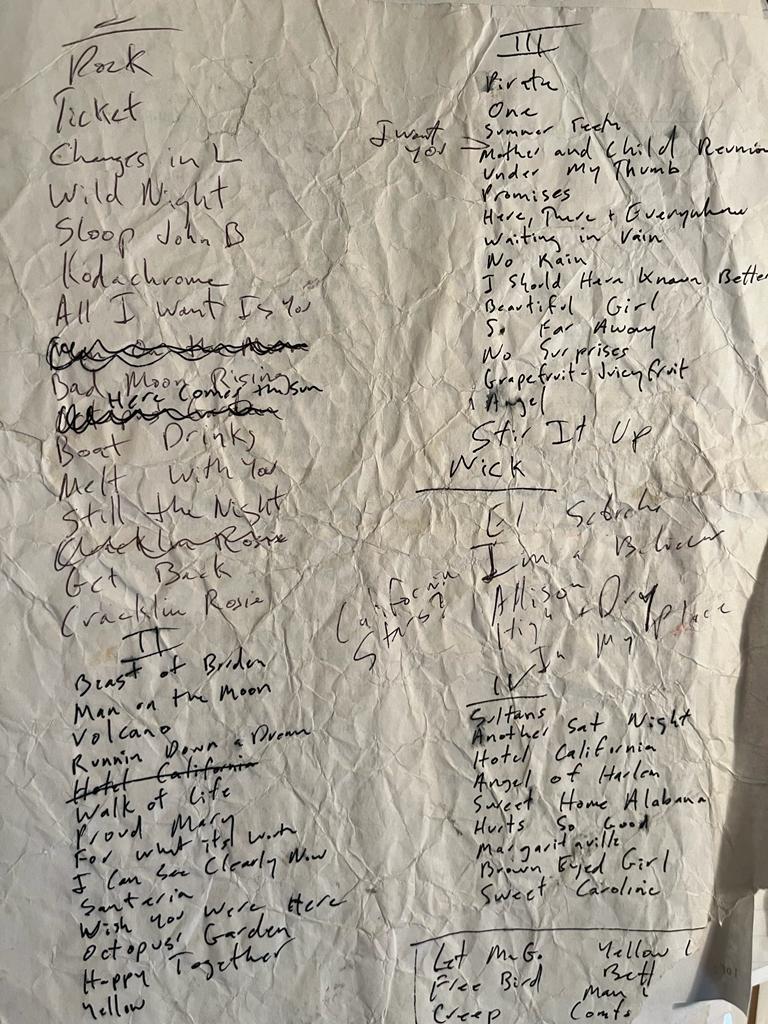 Rock
Ticket
Changes in L
Wild Night
Sloop John B
Kodachrome
All I Want Is You
Bad Moon Rising
Here Comes the sun
Boat Drinks
Melt With You
Still the Night
Cracklin Rosie
Get Back
Cracklin Rosie
II
Beast of Burden
Man on the Moon
Volcano
Runnin Down a Dream
Hotel California
Walk of Life
Proud Mary
For what its worth
I Can See Clearly Now
Santeria
Wish You Were Here
Octopus' Garden
Happy Together
Yellow
III
Pirate
One
Summer Teeth
I want you
Mother and Child Reunion
Under My Thumb
Promises
Here, There + Everywhere
Waiting in Vain
No Rain
I Should Have Known Better
Beautiful Girl
So Far Away
No Surprises
Grapefruit-Juicyfruit
Angel
Stir It Up
Nick
El
I'm a Believer
Allison
High + Dry
In My place
California Stars?
IV
Sultans
Another Sat Night
Hotel California
Angel of Harlem
Sweet Home Alabama
Hurts So Good
Margaritaville
Brown Eyed Girl
Sweet Caroline
Let Me Go Yellow L
Free Bird Bett
Creep Man i